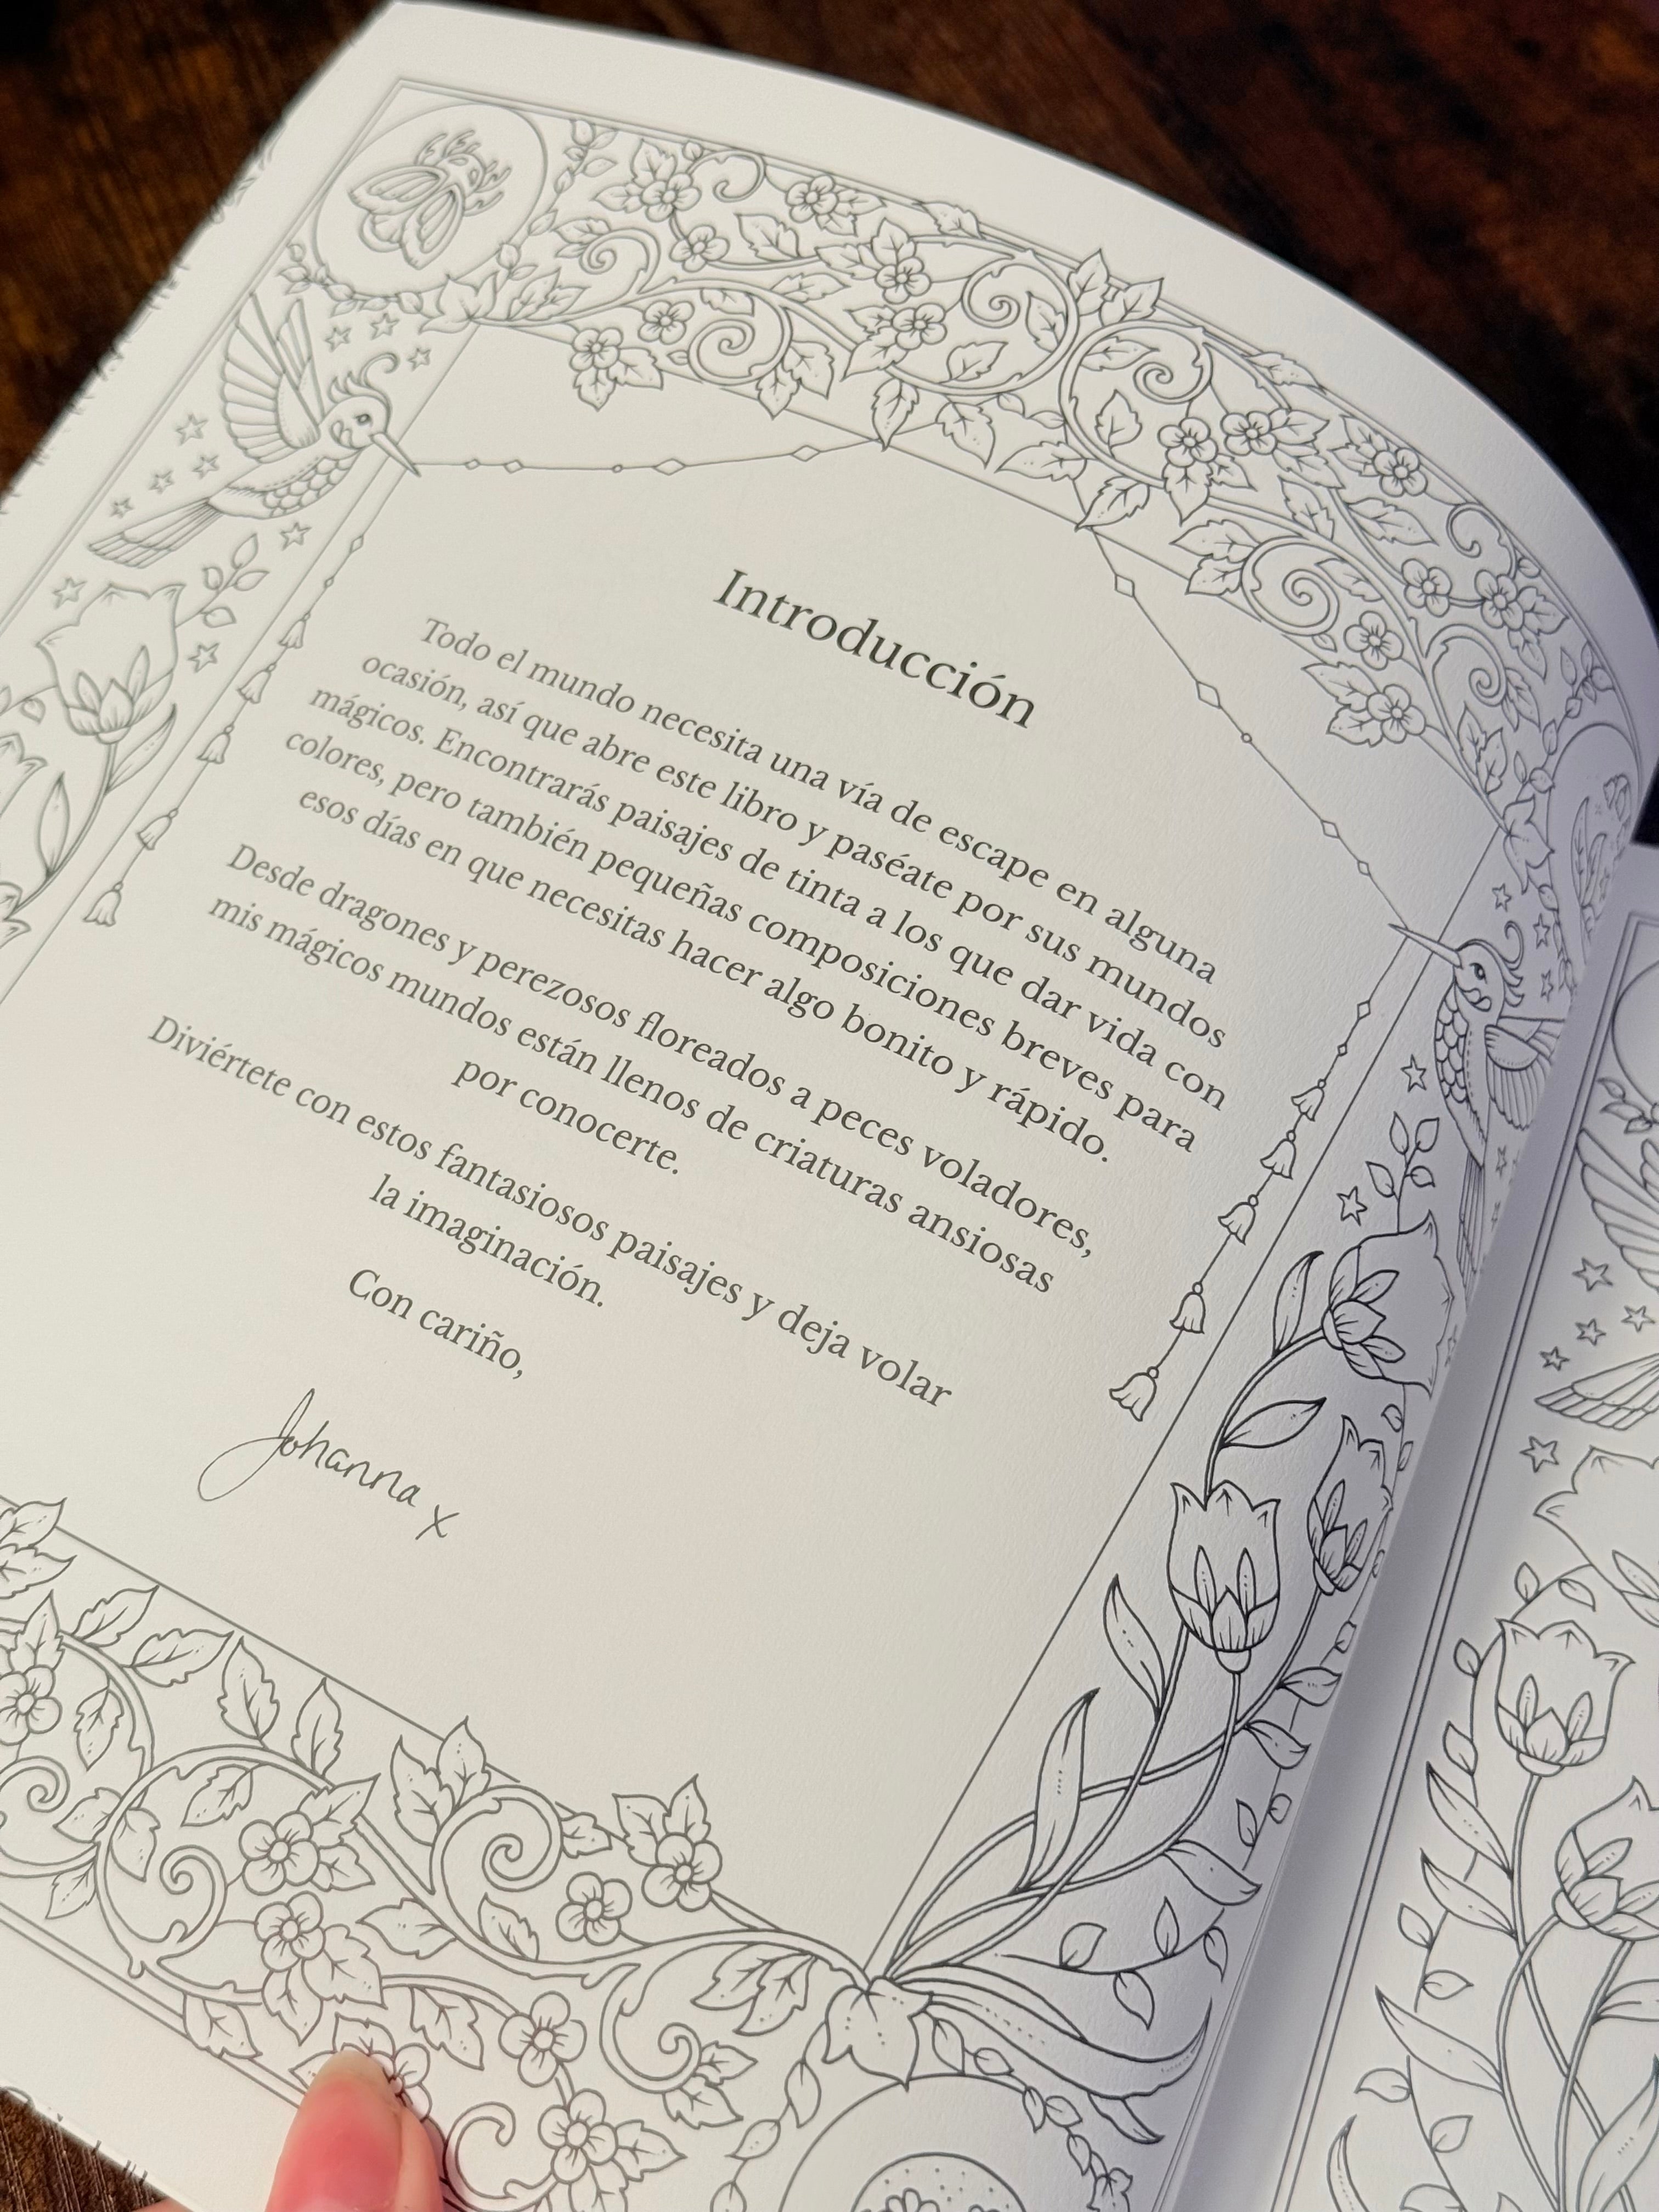 Introducción
Todo el mundo necesita una vía de escape en alguna
ocasión, así que abre este libro y paséate por sus mundos
mágicos. Encontrarás paisajes de tinta a los que dar vida con
colores, pero también pequeñas composiciones breves para
esos días en que necesitas hacer algo bonito y rápido.
Desde dragones y perezosos floreados a peces voladores,
mis mágicos mundos están llenos de criaturas ansiosas
por conocerte.
Diviértete con estos fantasiosos paisajes y deja volar
la imaginación.
Con cariño,
Johanna x